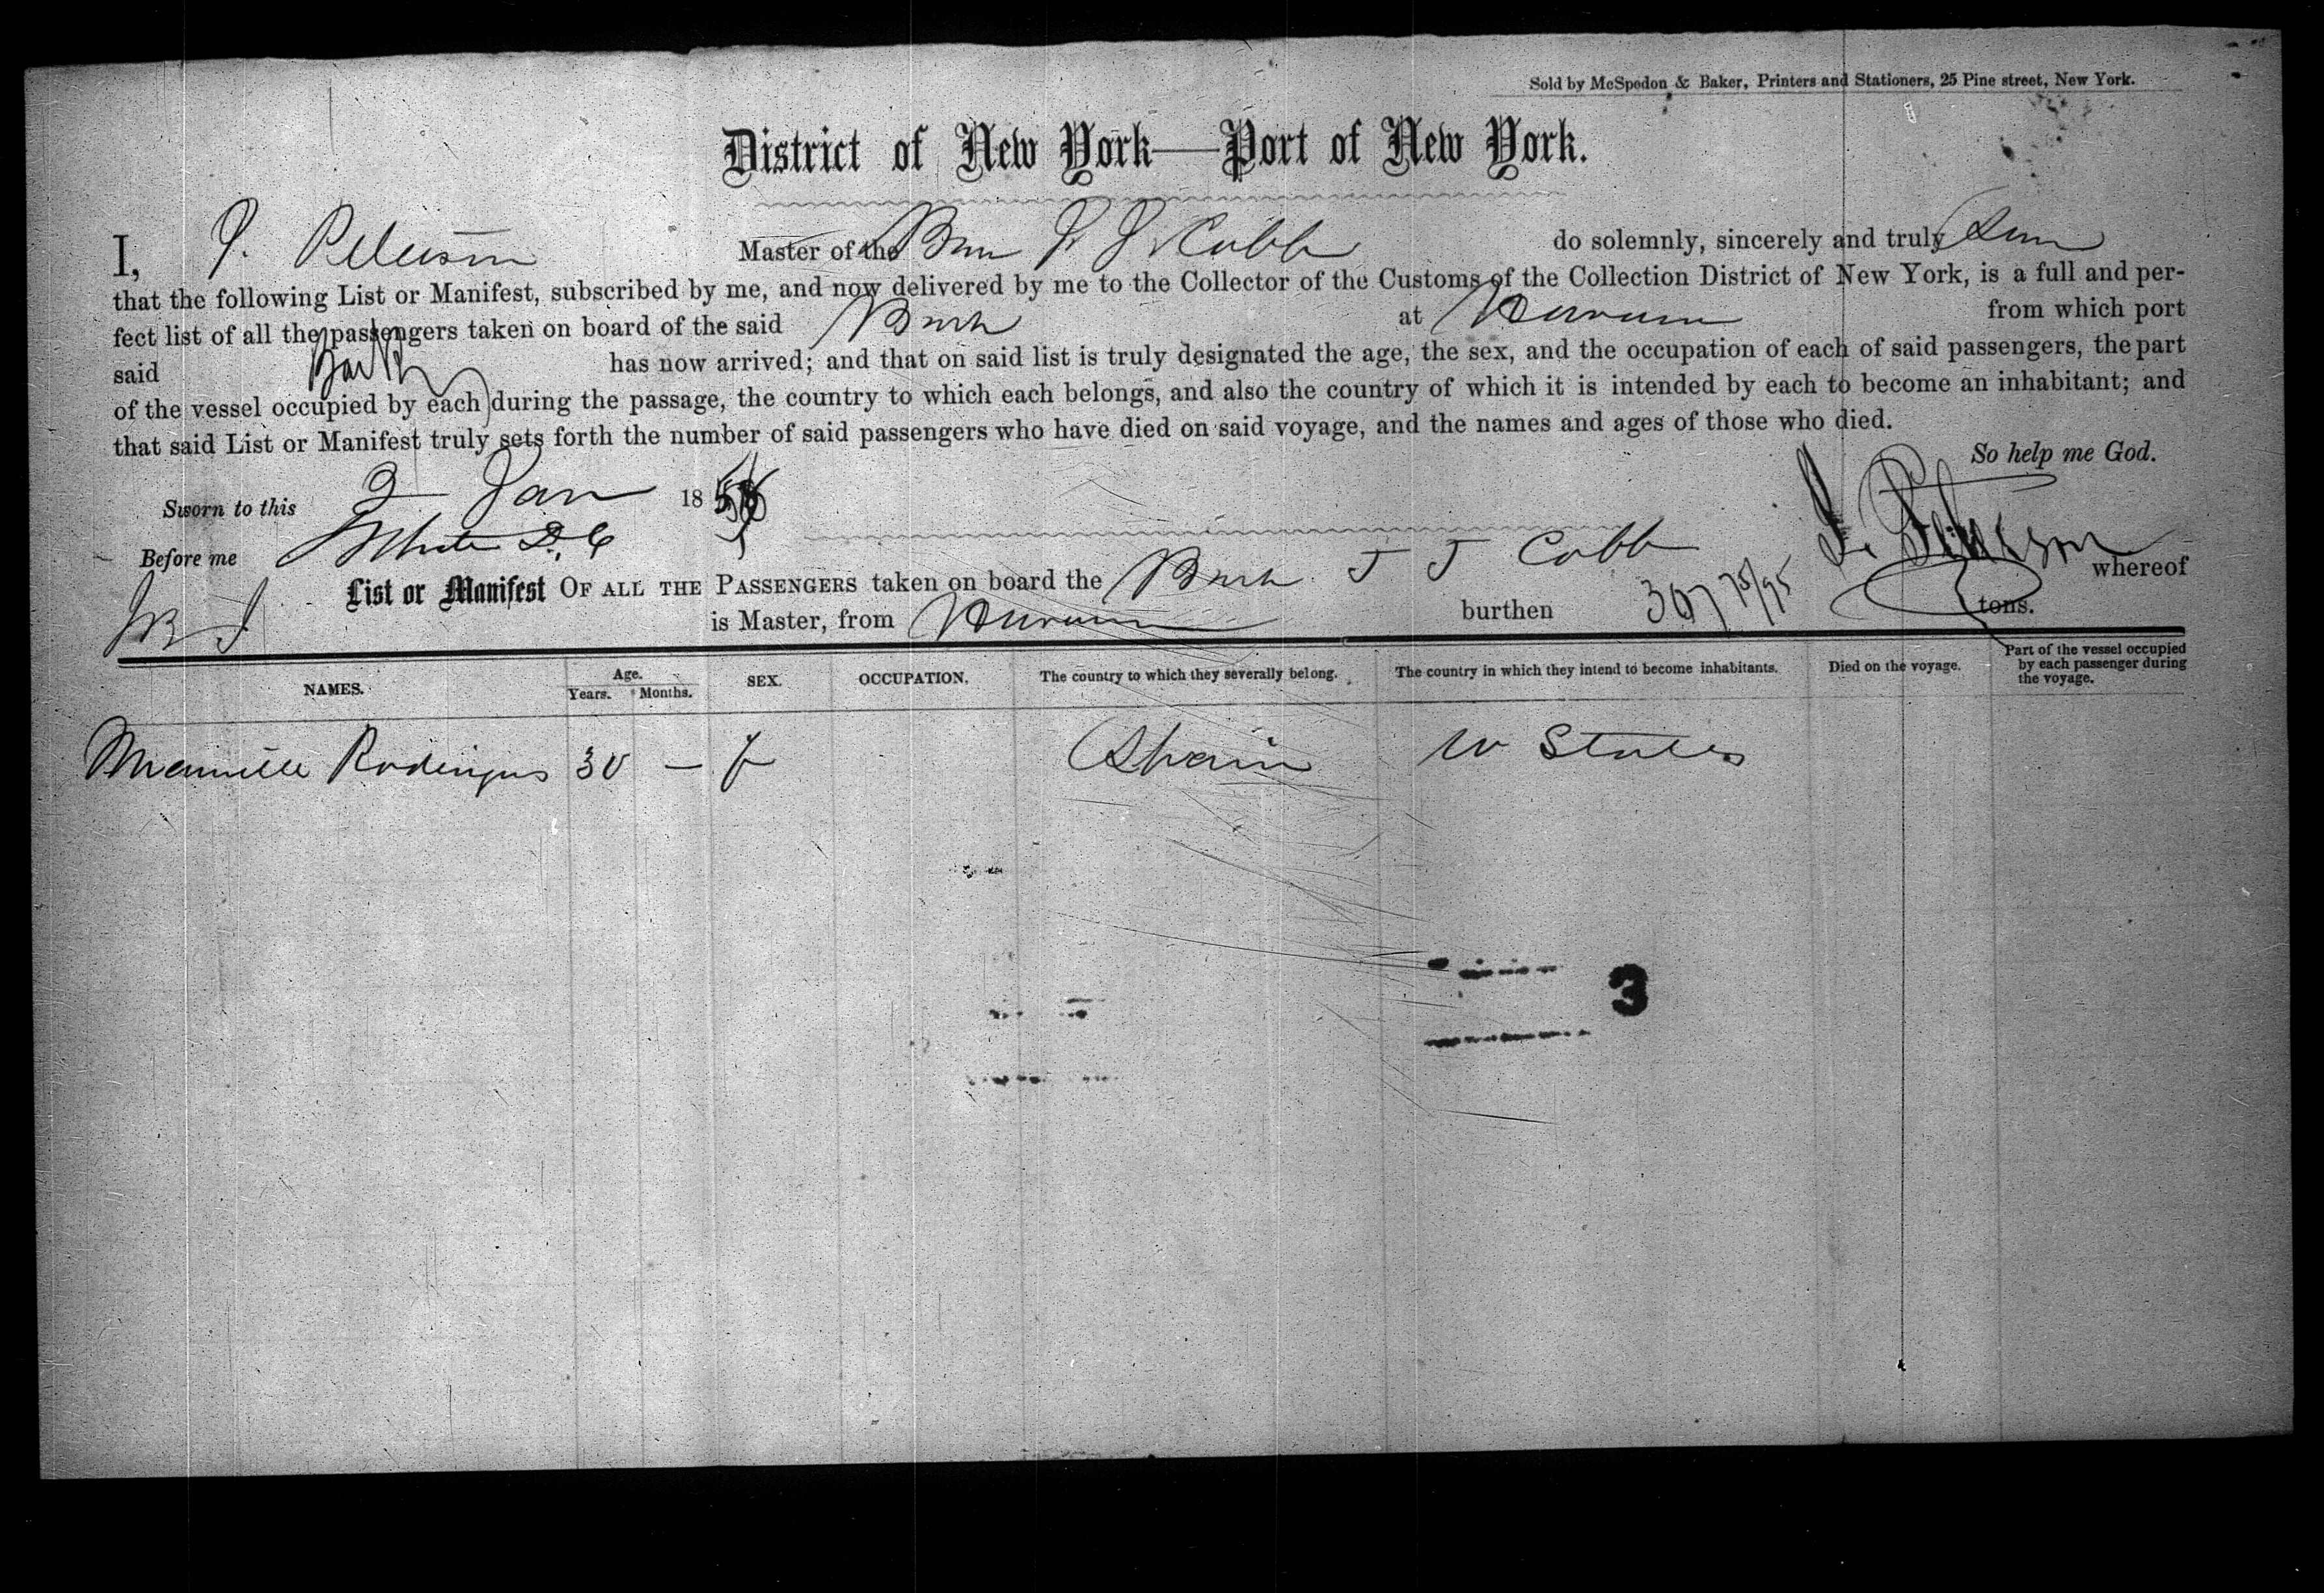 Sold by McSpedon & Baker, Printers and Stationers, 25 Pine street, New York.
District of New York—Port of New York.
I, J. Peterson Master of the J J Cobb do solemnly, sincerely and truly
that the following List or Manifest, subscribed by me, and now delivered by me to the Collector of the Customs of the Collection District of New York, is a full and per-
fect list of all the passengers taken on board of the said Bark at from which port
said Bark has now arrived; and that on said list is truly designated the age, the sex, and the occupation of each of said passengers, the part
of the vessel occupied by each during the passage, the country to which each belongs, and also the country of which it is intended by each to become an inhabitant; and
that said List or Manifest truly sets forth the number of said passengers who have died on said voyage, and the names and ages of those who died.
So help me God.
Sworn to this 2 Jan 18
J. Peterson
Before me White D. C
List or Manifest OF ALL THE PASSENGERS taken on board the Bark J J Cobb whereof
is Master, from burthen 397 75/95 tons.
NAMES. Age. Years. Months. SEX. OCCUPATION. The country to which they severally belong. The country in which they intend to become inhabitants. Died on the voyage. Part of the vessel occupied by each passenger during the voyage.
Rodrigus 30 — f Spain U States
3